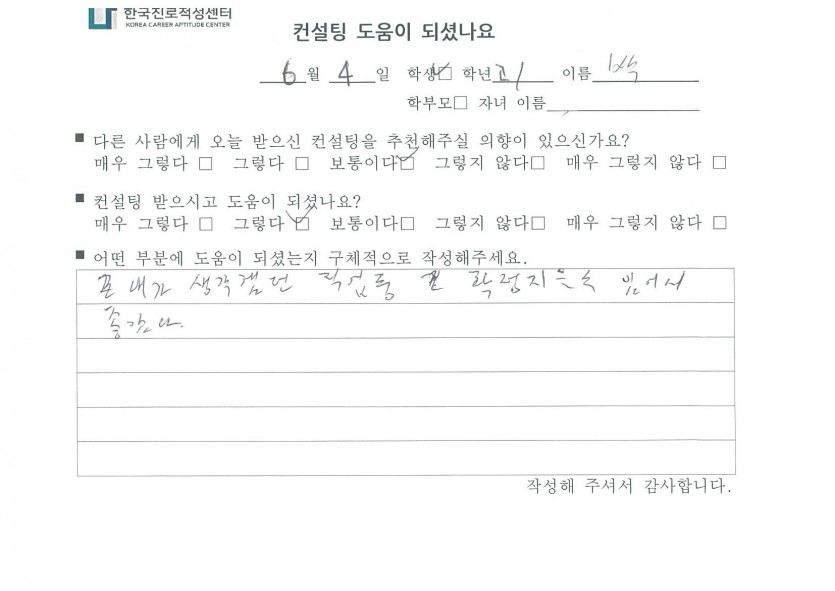 한국진로적성센터
KOREA CAREER APTITUDE CENTER
컨설팅 도움이 되셨나요
6월 4일 학생☑ 학년 고1 이름 박
학부모□ 자녀 이름
■ 다른 사람에게 오늘 받으신 컨설팅을 추천해주실 의향이 있으신가요?
매우 그렇다 □ 그렇다 □ 보통이다☑ 그렇지 않다□ 매우 그렇지 않다 □
■ 컨설팅 받으시고 도움이 되셨나요?
매우 그렇다 □ 그렇다 ☑ 보통이다□ 그렇지 않다□ 매우 그렇지 않다 □
■ 어떤 부분에 도움이 되셨는지 구체적으로 작성해주세요.
내가 생각했던 직업통 확정지을수 있어서
좋았다.
작성해 주셔서 감사합니다.